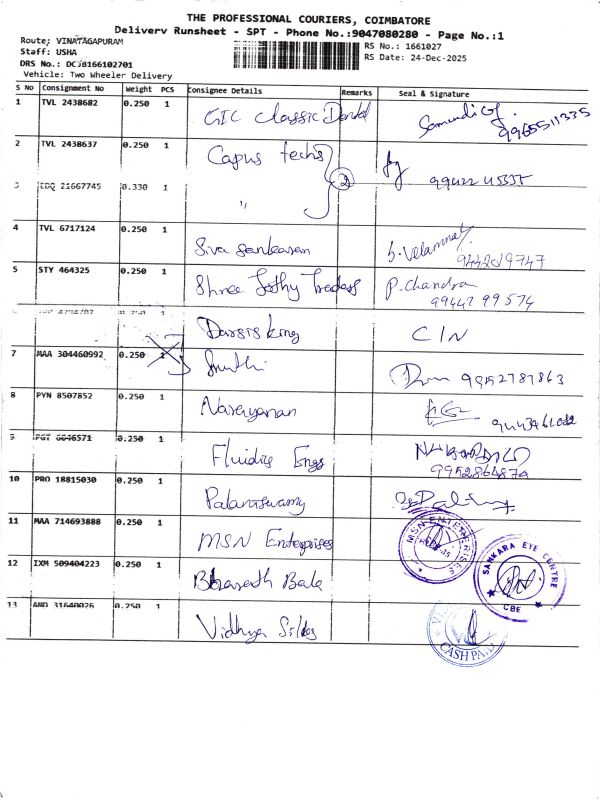 THE PROFESSIONAL COURIERS, COIMBATORE
Delivery Runsheet - SPT - Phone No.:9047080280 - Page No.:1
Route: VINATAGAPURAM
Staff: USHA
DRS No.: DCJ8166102701
Vehicle: Two Wheeler Delivery
RS No.: 1661027
RS Date: 24-Dec-2025
S No Consignment No Weight PCS Consignee Details Remarks Seal & Signature
1 TVL 2438682 0.250 1 GIC Classic Dental 9965511335
2 TVL 2438637 0.250 1 Capus techs 2
3 21667745 0.330 1 "
4 TVL 6717124 0.250 1 Siva Sankaran S. Velammal
5 STY 464325 0.250 1 Shree Jothy Traders P. Chandra
9442299574
Darsis King CIN
7 MAA 304460992 0.250 1 Smuthi
8 PYN 8507852 0.250 1 Narayanan
9 0.250 1 Fluidics Engs
9952864874
10 PRO 18815030 0.250 1 Palaniswamy
11 MAA 714693888 0.250 1 MSN Enterprises MSN ENTERPRISES
12 IXM 509404223 0.250 1 Bharath Bala SANKARA EYE CENTRE CBE
13 AMD 31640026 0.250 1 Vidhya Silks CASH PAID